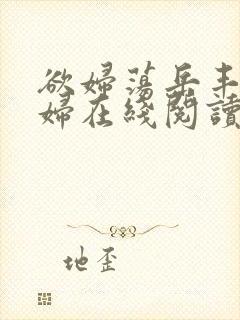 欲婦蕩岳丰
婦在綫閱讀
地歪